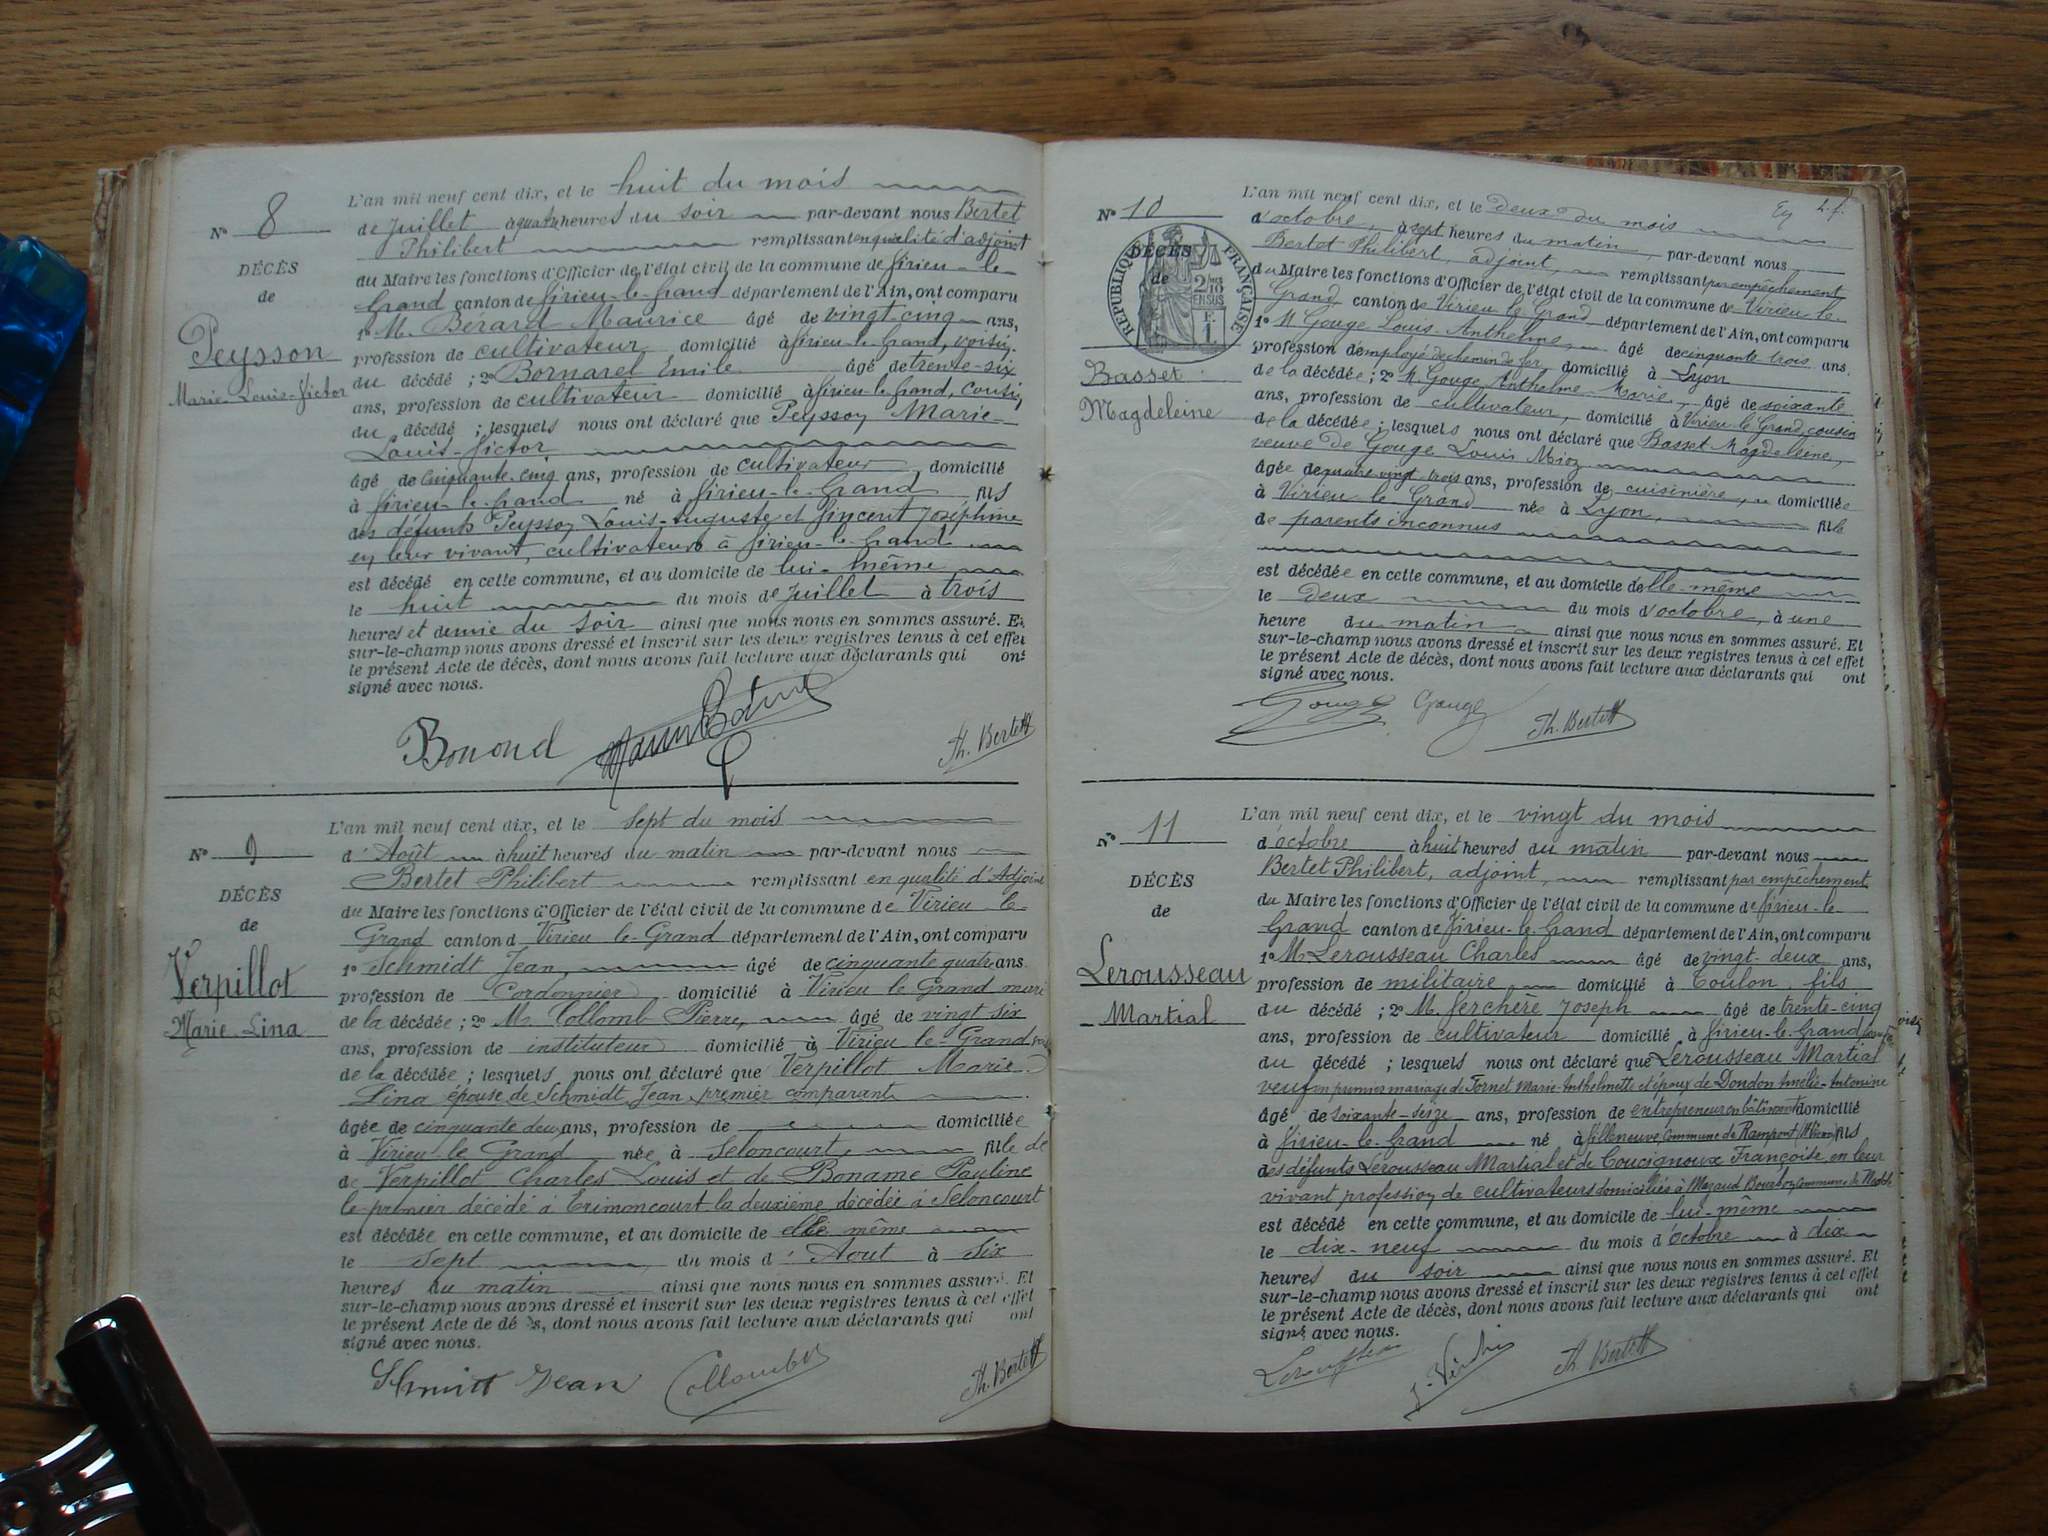 N° 8
DÉCÈS
de
Peysson
Marie-Louis-Victor
L'an mil neuf cent dix, et le huit du mois
de Juillet à quatre heures du soir par-devant nous Bertet
Philibert remplissant en qualité d'adjoint
du Maire les fonctions d'Officier de l'état civil de la commune de Virieu-le-
Grand canton de Virieu-le-Grand département de l'Ain, ont comparu
1° M. Bérard Maurice âgé de vingt-cinq ans,
profession de cultivateur domicilié à Virieu-le-Grand, voisin
du décédé ; 2° Bornarel Emile âgé de trente-six
ans, profession de cultivateur domicilié à Virieu-le-Grand, cousin
du décédé ; lesquels nous ont déclaré que Peysson Marie-
Louis-Victor
âgé de cinquante-cinq ans, profession de cultivateur domicilié
à Virieu-le-Grand né à Virieu-le-Grand fils
des défunts Peysson Louis-Auguste et Vincent Joséphine
en leur vivant, cultivateurs à Virieu-le-Grand
est décédé en cette commune, et au domicile de lui-même
le huit du mois de Juillet à trois
heures et demie du soir ainsi que nous nous en sommes assuré. Et
sur-le-champ nous avons dressé et inscrit sur les deux registres tenus à cet effet
le présent Acte de décès, dont nous avons fait lecture aux déclarants qui ont
signé avec nous.
Ph. Bertet
N° 9
DÉCÈS
de
Verpillot
Marie-Lina
L'an mil neuf cent dix, et le sept du mois
d'Août à huit heures du matin par-devant nous
Bertet Philibert remplissant en qualité d'Adjoint
du Maire les fonctions d'Officier de l'état civil de la commune de Virieu-le-
Grand canton d Virieu-le-Grand département de l'Ain, ont comparu
1° Schmidt Jean, âgé de cinquante quatre ans
profession de Cordonnier domicilié à Virieu le Grand mari
de la décédée ; 2° M. Collomb Pierre, âgé de vingt six
ans, profession de instituteur domicilié à Virieu-le-Grand
de la décédée ; lesquels nous ont déclaré que Verpillot Marie
Lina épouse de Schmidt Jean, premier comparant
âgée de cinquante deux ans, profession de domiciliée
à Virieu le Grand née à Seloncourt, fille de
de Verpillot Charles Louis et de Boname Pauline
le premier décédé à Erimoncourt la deuxième décédée à Seloncourt
est décédée en cette commune, et au domicile de elle même
le sept du mois d' Aout à six
heures du matin ainsi que nous nous en sommes assuré. Et
sur-le-champ nous avons dressé et inscrit sur les deux registres tenus à cet effet
le présent Acte de décès, dont nous avons fait lecture aux déclarants qui ont
signé avec nous.
Schmitt Jean Collomb Ph. Bertet
N° 10
DÉCÈS
de
RÉPUBLIQUE FRANÇAISE
2/10
EN SUS
F. 1
Basset
Magdeleine
L'an mil neuf cent dix, et le deux du mois
d'octobre, à sept heures du matin, par-devant nous
Bertet Philibert, adjoint, remplissant par empêchement
du Maire les fonctions d'Officier de l'état civil de la commune de Virieu-le-
Grand canton de Virieu le Grand département de l'Ain, ont comparu
1° M Gouge Louis-Anthelme, âgé de cinquante trois ans,
profession d'employé de chemin de fer, domicilié à Lyon
de la décédée ; 2° M. Gouge Anthelme Marie, âgé de soixante
ans, profession de cultivateur, domicilié à Virieu-le-Grand, cousin
de la décédée ; lesquels nous ont déclaré que Basset Magdeleine,
veuve de Gouge Louis
âgée de quatre-vingt-trois ans, profession de cuisinière, domiciliée
à Virieu le Grand née à Lyon, fille
de parents inconnus
est décédée en cette commune, et au domicile d'elle-même
le deux du mois d'octobre, à une
heure du matin ainsi que nous nous en sommes assuré. Et
sur-le-champ nous avons dressé et inscrit sur les deux registres tenus à cet effet
le présent Acte de décès, dont nous avons fait lecture aux déclarants qui ont
signé avec nous.
Gouge Gouge Ph. Bertet
N° 11
DÉCÈS
de
Lerousseau
Martial
L'an mil neuf cent dix, et le vingt du mois
d'octobre à huit heures du matin par-devant nous
Bertet Philibert, adjoint, remplissant par empêchement
du Maire les fonctions d'Officier de l'état civil de la commune de Virieu-le-
Grand canton de Virieu-le-Grand département de l'Ain, ont comparu
1° M Lerousseau Charles âgé de vingt-deux ans,
profession de militaire domicilié à Toulon, fils
du décédé ; 2° M. Verchère Joseph âgé de trente-cinq
ans, profession de cultivateur domicilié à Virieu-le-Grand
du décédé ; lesquels nous ont déclaré que Lerousseau Martial
veuf en premier mariage de Tornet Marie-Anthelmette et époux de Dondon Amélie-Antonine
âgé de soixante-seize ans, profession de entrepreneur en bâtiment domicilié
à Virieu-le-Grand né à Villeneuve, commune de Rampont (Hte Vienne) fils
des défunts Lerousseau Martial et de Coucignoux Françoise, en leur
vivant profession de cultivateurs domiciliés à Mazaud Bourbon, commune de
est décédé en cette commune, et au domicile de lui-même
le dix-neuf du mois d'octobre à dix
heures du soir ainsi que nous nous en sommes assuré. Et
sur-le-champ nous avons dressé et inscrit sur les deux registres tenus à cet effet
le présent Acte de décès, dont nous avons fait lecture aux déclarants qui ont
signé avec nous.
Lerousseau Ph. Bertet